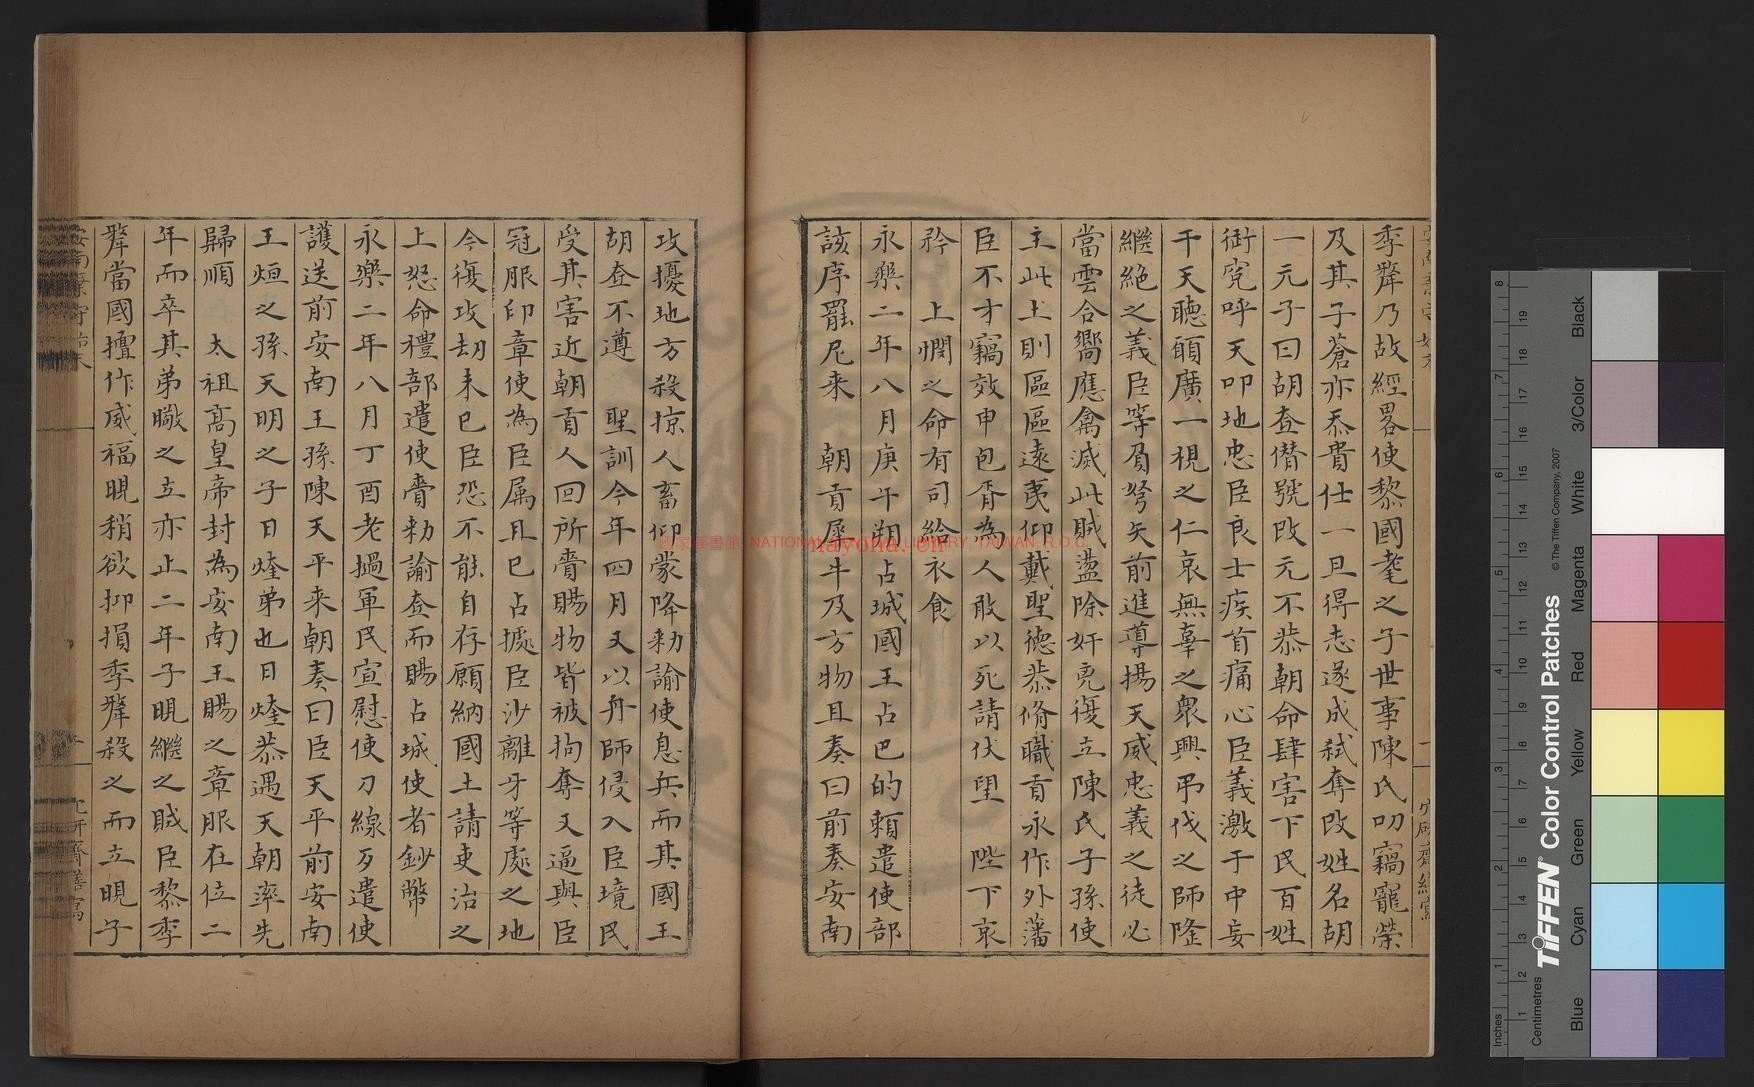 季犛乃故經畧使黎國耄之子世事陳氏叨竊寵榮
及其子蒼亦忝貴仕一旦得志遂成弒奪改姓名胡
一元子曰胡𡗨僣號改元不恭朝命肆害下民百姓
銜寃呼天叩地忠臣良士疾首痛心臣義激于中妄
干天聽願廣一視之仁哀無辜之衆興弔伐之師隆
繼絕之義臣等負弩矢前進導揚天威忠義之徒必
當雲合嚮應禽滅此賊盪除奸兇復立陳氏子孫使
主此土則區區遠夷仰戴聖德恭脩職貢永作外藩
臣不才竊效申包胥為人敢以死請伏望 陛下哀
矜 上憫之命有司給衣食
永樂二年八月庚午朔占城國王占巴的賴遣使部
該序罷尼来 朝貢犀牛及方物且奏曰前奏安南
攻擾地方殺掠人畜仰蒙降勑諭使息兵而其國王
胡𡗨不遵 聖訓今年四月又以舟師侵入臣境民
受其害近朝貢人回所賫賜物皆被拘奪又逼與臣
冠服印章使為臣属且已占據臣沙離牙等處之地
今復攻劫未已臣恐不能自存願納國土請吏治之
上怒命禮部遣使賫勑諭𡗨而賜占城使者鈔幣
永樂二年八月丁酉老撾軍民宣慰使刀線歹遣使
護送前安南王孫陳天平来朝奏曰臣天平前安南
王烜之孫天明之子日煃弟也日煃恭遇天朝率先
歸順 太祖高皇帝封為安南王賜之章服在位二
年而卒其弟暾之立亦止二年子晛繼之賊臣黎季
犛當國擅作威福晛稍欲抑損季犛殺之而立晛子
安南棄守始末
國家圖書館 NATIONAL CENTRAL LIBRARY, TAIWAN, R.O.C.
nayona.cn
Inches
Centimetres
TIFFEN Color Control Patches
© The Tiffen Company, 2007
Blue
Cyan
Green
Yellow
Red
Magenta
White
3/Color
Black